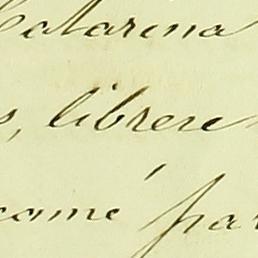 Catarina
, librere
come par